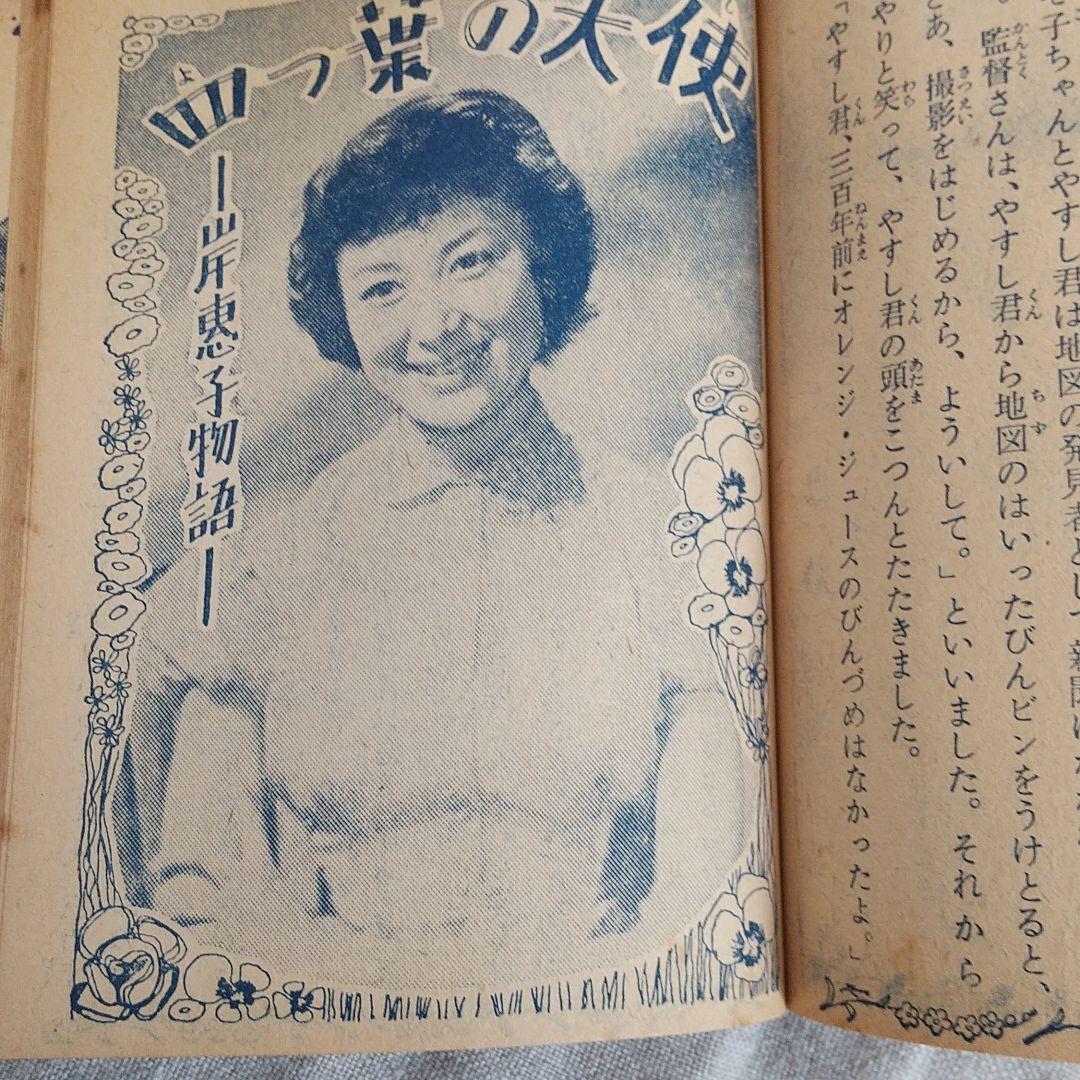 恵子ちゃんとやすし君は地図の発見者として新聞に
監督さんは、やすし君から地図のはいったびんビンをうけとると、
さあ、撮影をはじめるから、よういして。」といいました。それから
やりと笑って、やすし君の頭をこつんとたたきました。
「やすし君、三百年前にオレンジ・ジュースのびんづめはなかったよ。」
四つ葉の天使
―岸恵子物語―